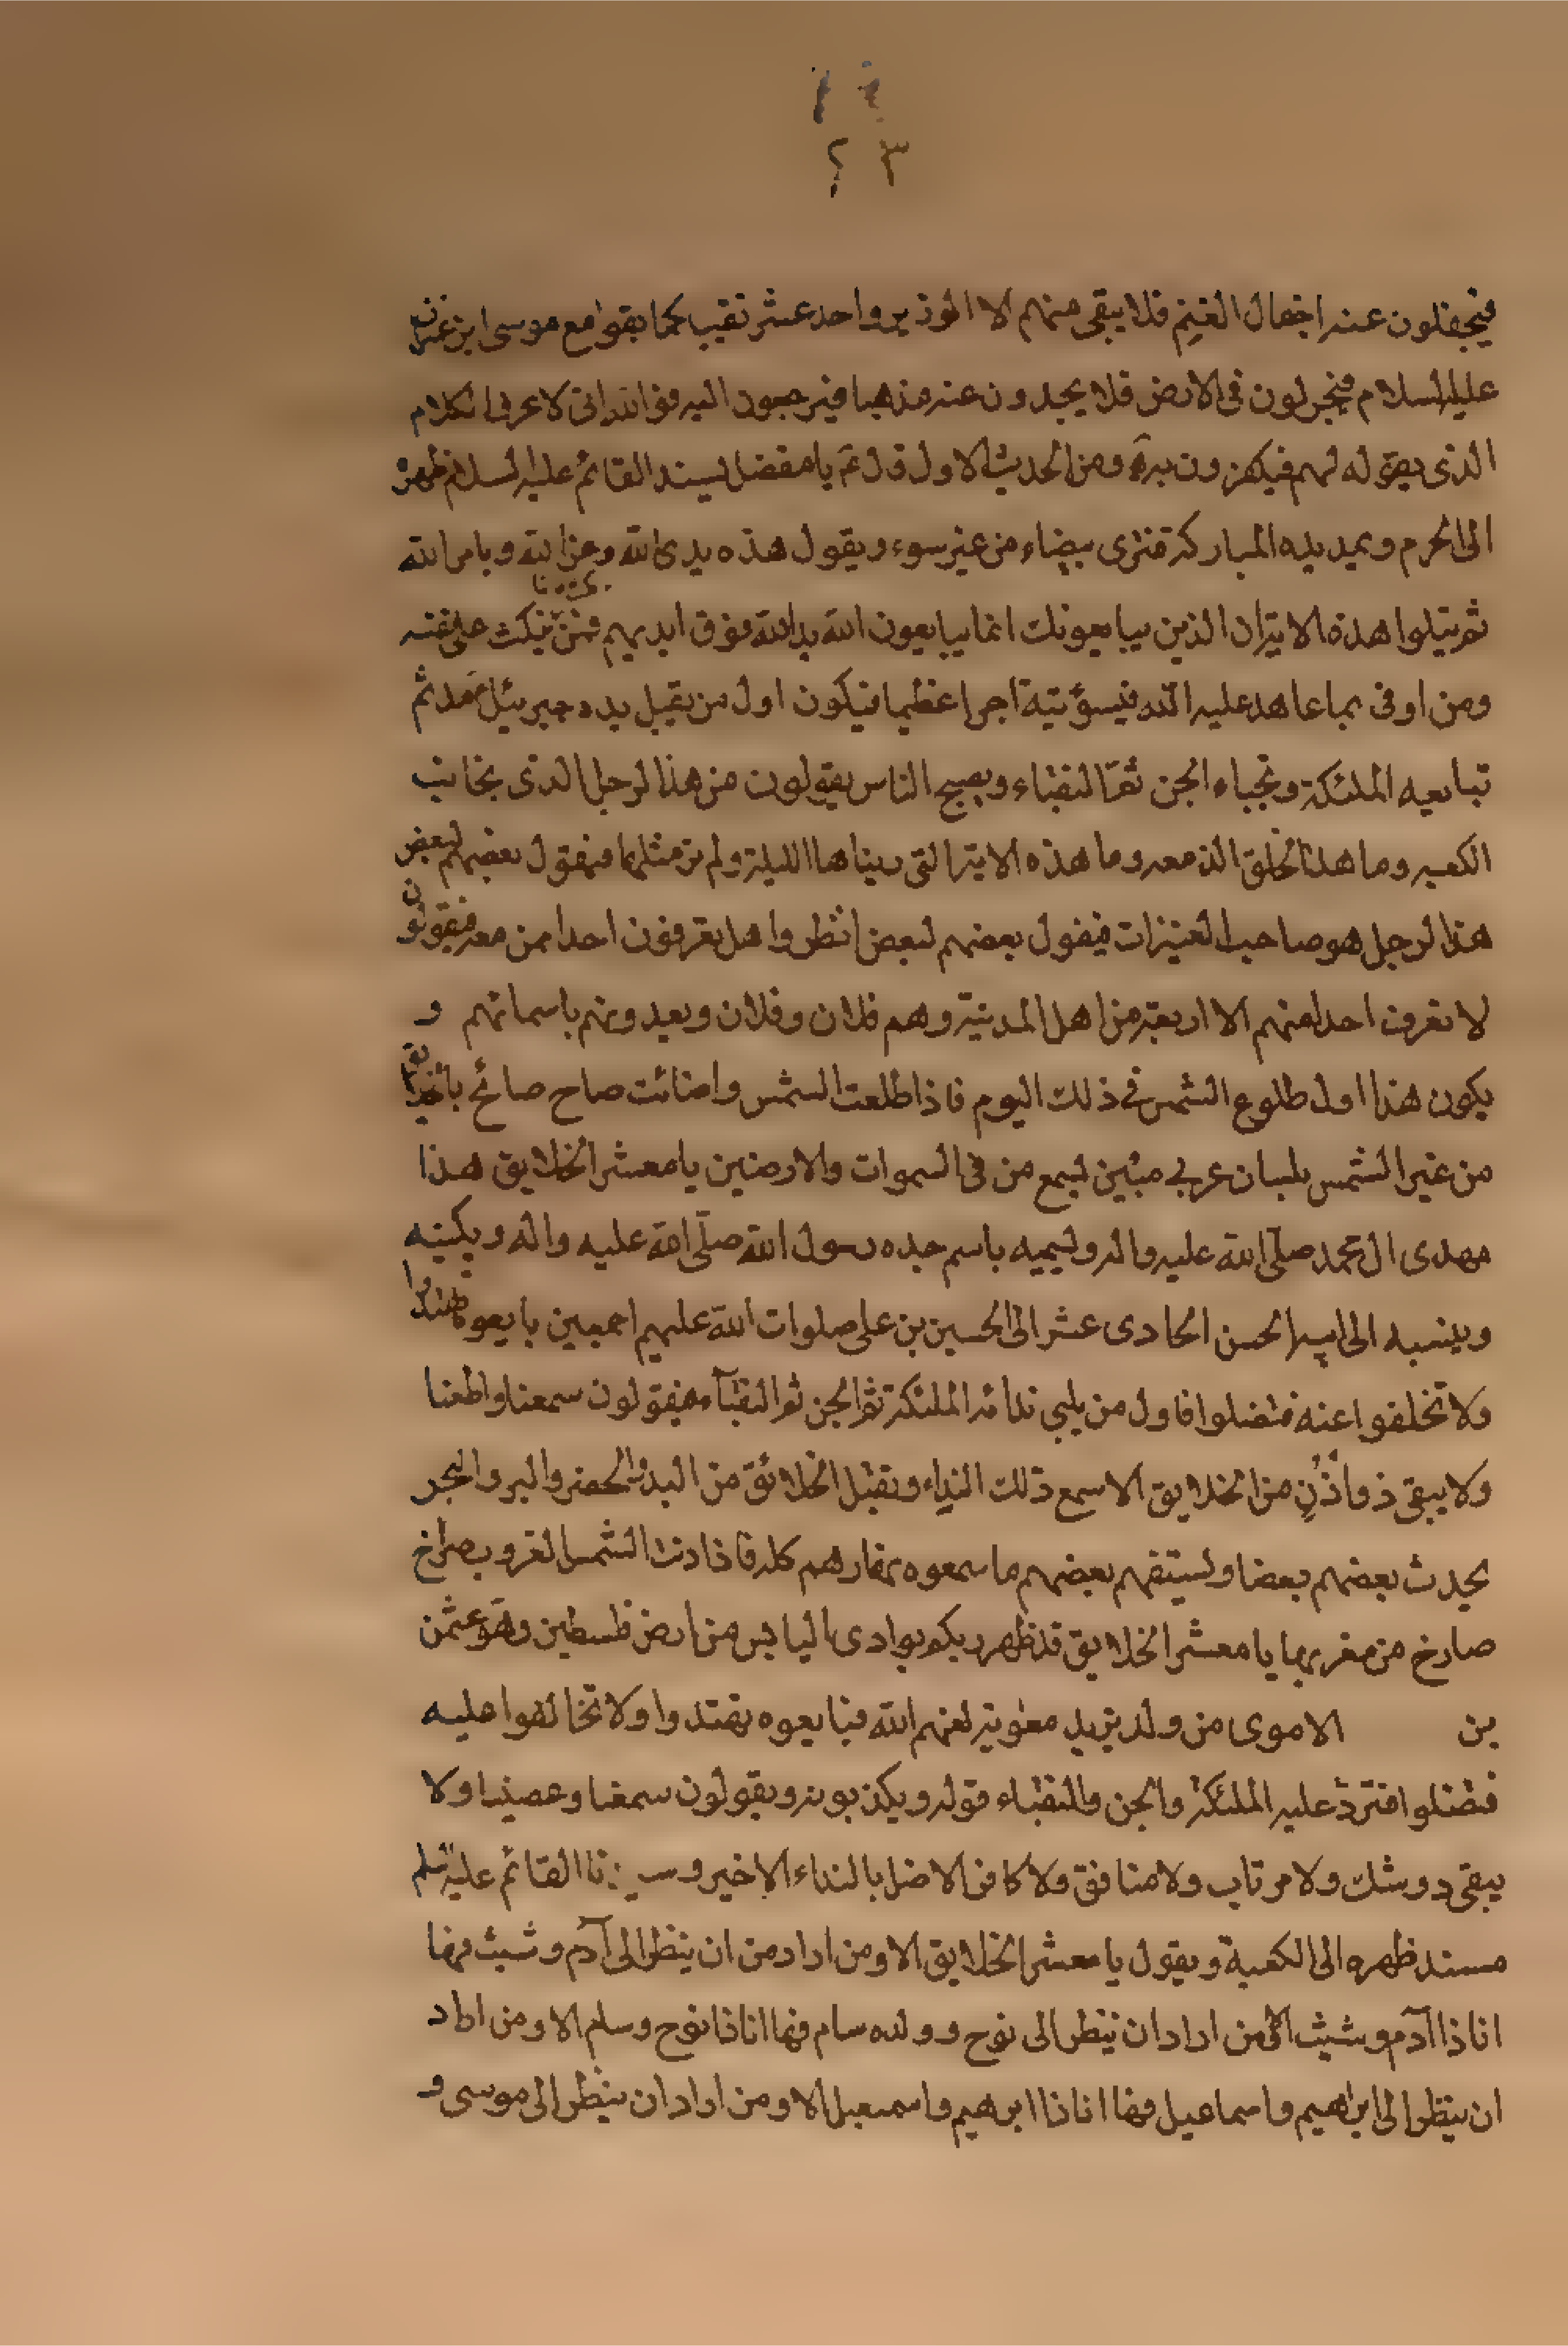 ٣ ٤
فيجفلون عنه اجفال الغنم فلا يبقى منهم الا الوزير واحد عشر نقيب كما بقوا مع موسى ابن عمران
عليه السلام فيجولون في الارض فلا يجدون عنه مذهبا فيرجعون اليه فوالله اني لاعرف الكلام
الذي يقوله لهم فيكفرون به ومن الحديث الاول قال ع يا مفضل يسند القائم عليه السلام ظهره
الى الحرم ويمد يده المباركة فترى بيضاء من غير سوء ويقول هذه يد الله وعن الله وبامر الله
ثم يتلوا هذه الاية ان الذين يبايعونك انما يبايعون الله يد الله فوق ايديهم فمن نكث فانما ينكث على نفسه
ومن اوفى بما عاهد عليه الله فسيؤتيه اجرا عظيما فيكون اول من يقبل يده جبرئيل ع ثم
تبايعه الملئكة ونجباء الجن ثم النقباء ويصبح الناس يقولون من هذا الرجل الذي بجانب
الكعبه وما هذا الخلق الذ معه وما هذه الاية التي ريناها الليلة ولم نر مثلها فيقول بعضهم لبعض
هذا الرجل هو صاحب العنيزات فيقول بعضهم لبعض انظروا هل تعرفون احدا ممن معه فيقولون
لا نعرف احدا منهم الا اربعة من اهل المدينة وهم فلان وفلان ويعدونهم باسمائهم و
يكون هذا اول طلوع الشمس في ذلك اليوم فاذا طلعت الشمس واضائت صاح صائح بالخلايق
من عين الشمس بلسان عربي مبين يسمع من في السموات والارضين يا معشر الخلايق هذا
مهدي ال محمد صلى الله عليه واله ويسميه باسم جده رسول الله صلى الله عليه واله ويكنيه
وينسبه الى ابيه الحسن الحادي عشر الى الحسين بن علي صلوات الله عليهم اجمعين بايعوه تهتدوا
ولا تخلفوا عنه فتضلوا فاول من يلبي ندائه الملئكة ثم الجن ثم النقبآء فيقولون سمعنا واطعنا
ولا يبقى ذو اذن من الخلايق الا سمع ذلك النداء وتقبل الخلائق من البدو والحضر والبر والبحر
يحدث بعضهم بعضا ويستفهم بعضهم ما سمعوه نهارهم كله فاذا دنت الشمس للغروب صراخ
صارخ من مغربها يا معشر الخلايق قد ظهر ربكم بوادى اليابس من ارض فلسطين وهو عثمن
بن الاموى من ولد يزيد معوية لعنهم الله فبايعوه تهتدوا ولا تخالفوا عليه
فتضلوا فترد عليه الملئكة والجن والنقباء قوله ويكذبونه ويقولون سمعنا وعصينا ولا
يبقى ذو شك ولا مرتاب ولا منافق ولا كافر الا ضل بالنداء الاخير وسيدنا القائم عليه السلم
مسند ظهره الى الكعبة ويقول يا معشر الخلايق الا ومن اراد من ان ينظر الى آدم وشيث فها
انا ذا آدم وشيث الا ومن اراد ان ينظر الى نوح وولده سام فها انا ذا نوح وسام الا ومن اراد
ان ينظر الى ابراهيم واسماعيل فها انا ذا ابرهيم واسمعيل الا ومن اراد ان ينظر الى موسى و